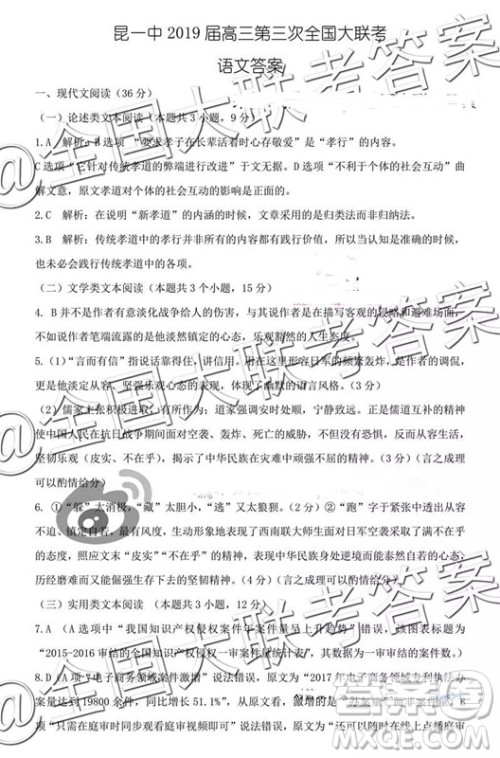 昆一中 2019 届高三第三次全国大联考
语文答案
一、现代文阅读（36 分）
（一）论述类文本阅读（本题共 3 小题，9 分）
1.A 解析：B 选项“要求孝子在长辈活着时心存敬爱”是“孝行”的内容。
C 选项“它针对传统孝道的弊端进行改进”于文无据。D 选项“不利于个体的社会互动”曲
解文意，原文孝道对个体的社会互动的影响是正面的。
2.C 解析：在说明“新孝道”的内涵的时候，文章采用的是归类法而非引证法。
3.B 解析：传统孝道中的孝行并非均适用于现代社会，所以新孝道中的孝行内容
也未必会践行传统孝道中的各项。
（二）文学类文本阅读（本题共 3 个小题，15 分）
4. B 并不是作者有意淡化战争给人的伤害，与其说作者是在描写客观的侵略和避难场面，
不如说作者笔端流露的是他淡然镇定的心态，乐观旷达的情怀。
5.（1）“言而有信”指说话靠得住，讲信用。用在这里形容日军的频繁轰炸，是作者的调侃，
更是他淡定从容、坚强乐观心态的表现，也体现了他幽默的语言风格。（3 分）
（2）儒家主张积极进取，有所作为；道家强调安时处顺，宁静致远。正是儒道互补的精神
使中国人民在抗日战争期间面对空袭、轰炸、死亡的威胁，不畏惧、不屈服，从容淡定、
坚韧乐观（皮实、不在乎），揭示了中华民族在灾难中顽强不屈的精神。（3 分）（言之成理
可以酌情给分）
6. ①“躲”太消极，“藏”太胆小，“逃”又太狼狈。（2 分）②“跑”字于紧张中透出从容，
在不动声色中尽显乐观，生动形象地表现了西南联大师生面对日军空袭采取的不紧不慢
的态度，照应文末“皮实”“不在乎”的精神，表现中华民族身处逆境而能泰然若之的在
历经磨难而又万劫不复的生存状态下的坚韧精神。（4 分）（言之成理可以酌情给分）
（三）实用类文本阅读 （本题共 3 小题，12 分）
7.A （A 选项中“我国知识产权侵权案件年案量呈上升趋势”错误，该图表标题为
“2015-2016 审结的全国知识产权侵权一审案件量统计表”，其内容为一审审结的案件数。）
8.D （A 项“电子商务领域案件激增”说法错误，原文为“2017 年电子商务领域专利执法办
案量达到 19800 余件，同比增长 51.1%”，从原文看，激增的是“办案量”而非“案件”。B
项“只需在庭审时同步观看庭审视频即可”说法错误，原文为“还可以随时在线上点播庭审